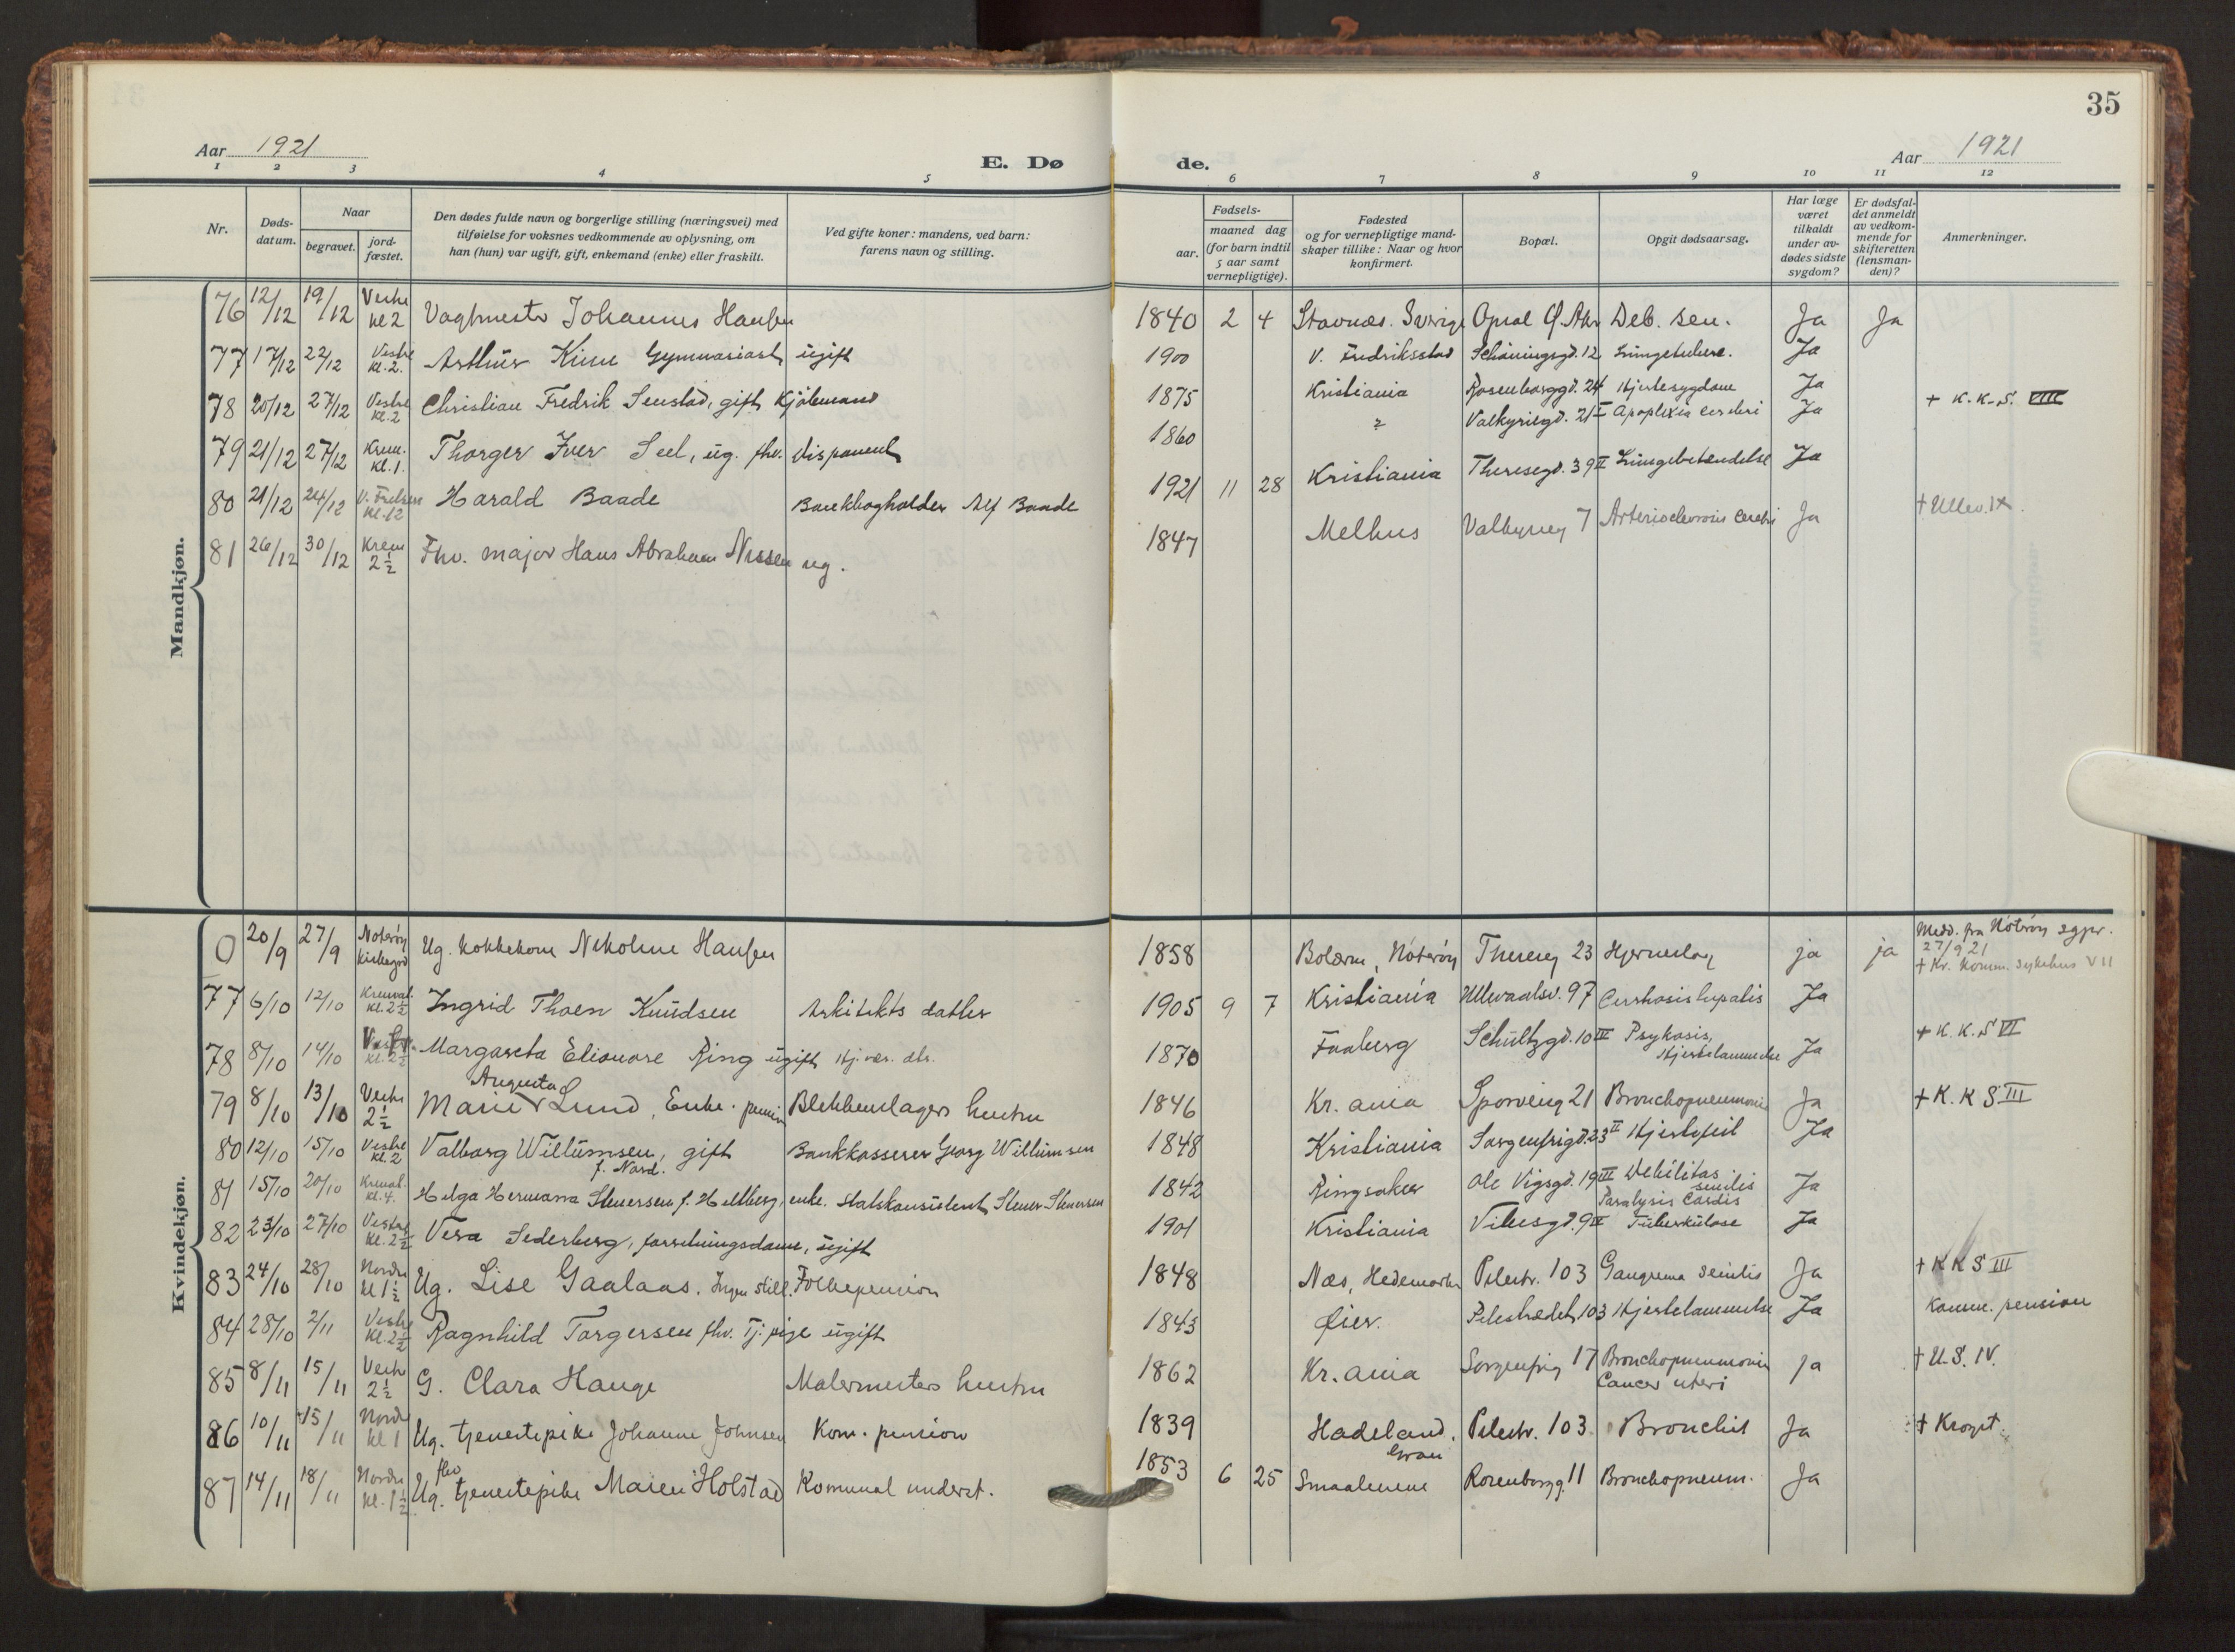 35
Aar 1921
E. Døde.
Aar 1921
1 2 3 4 5 6 7 8 9 10 11 12
Nr.
Døds-datum.
Naar
begravet.
jord-fæstet.
Den dødes fulde navn og borgerlige stilling (næringsvei) med
tilføielse for voksnes vedkommende av oplysning, om
han (hun) var ugift, gift, enkemand (enke) eller fraskilt.
Ved gifte koner: mandens, ved barn:
farens navn og stilling.
Fødsels-
aar.
maaned dag
(for barn indtil
5 aar samt
vernepligtige).
Fødested
og for vernepligtige mand-
skaper tillike: Naar og hvor
konfirmert.
Bopæl.
Opgit dødsaarsag.
Har læge
været
tilkaldt
under av-
dødes sidste
sygdom?
Er dødsfal-
det anmeldt
av vedkom-
mende for
skifteretten
(lensman-
den)?
Anmerkninger.
Mandkjøn.
76 12/12 19/12 Vestre kl 2 Vagtmester Johannes Hansen 1840 2 4 Stavnæs. Sverige Opsal Ø. Aker Deb. sen. Ja Ja
77 17/12 22/12 Vestre kl. 2. Arthur Gymnasiast ugift 1900 V. Fredriksstad Schöningsgd. 12 Lungetuberc. Ja
78 20/12 27/12 Vestre kl. 2 Christian Fredrik Senstad, gift Kjøbmand 1875 Kristiania Rosenborggd. 24 Hjertesygdom Ja + K.K.S. VIII
79 21/12 27/12 Krem. kl. 1. Thorger Iver Seel, ug. fhv. disponent 1860 Valkyriegd. 21 I Apoplexia cerebri Ja
80 21/12 24/12 V. Frelsers kl. 12 Harald Baade Bankbogholder Alf Baade 1921 11 28 Kristiania Theresegd. 39 II Lungebetændelse Ja
81 26/12 30/12 Krem 2½ Fhv. major Hans Abraham Nissen ug. 1847 Melhus Valkyrieg 7 Arteriosclerosis cerebri Ja + Ullev. IX.
Kvindekjøn.
0 20/9 27/9 Nøterøy kirkegrd Ug. kokkekone Nikoline Hansen 1858 Bolærne, Nøterøy Thereseg 23 Hjerneslag ja ja Medd. fra Nøterøy sgpr. 27/9 21 + Kr. komm. sykehus VII
77 6/10 12/10 Kremat. kl. 2½ Ingrid Thoen Knudsen Arkitekts datter 1905 9 7 Kristiania Ullevaalsv. 97 Cirrhosis hepatis Ja
78 8/10 14/10 Vestre kl. 2½ Margareta Elionore Ring ugift Hj. vær. dtr. 1870 Faaberg Schultzgd. 10 IV Psykosis, Hjertelammelse Ja + K.K.S VI
79 8/10 13/10 Vestre 2½ Marie Augusta Lund, Enke. pension Blikkenslagers hustru 1846 Kr.ania Sporveisg 21 Bronchopneumoni Ja + K.K.S III
80 12/10 15/10 Vestre kl. 2 Valborg Willumsen, f. Nord. gift Bankkasserer Georg Willumsen 1848 Kristiania Sorgenfrigd. 23 II Hjertefeil Ja
81 15/10 20/10 Kremat. kl. 4. Helga Hermana Steuersen f. Hellberg, enke. Statskonsulent Stener Stenersen 1842 Ringsaker Ole Vigsgd. 19 III Debilitas senilis Paralysis Cordis Ja
82 23/10 27/10 Vestre kl. 2½ Vera Sederberg, forretningsdame, ugift 1901 Kristiania Vibesgd. 9 IV Tuberkulose Ja
83 24/10 28/10 Nordre kl 1½ Ug. Lise Gaalaas. Ingen still. Folkepension 1848 Næs, Hedemarken Pilestr. 103 Gangrena senilis Ja + K K S III
84 28/10 2/11 Vestre kl. 2½ Ragnhild Torgersen fhv. Tj. pige ugift 1843 Øier. Pilestrædet 103 Hjertelammelse Ja Komm. pension
85 8/11 15/11 Vestre 2½ G. Clara Hauge Malermesters hustru 1862 Kr.ania Sorgenfrig 17 Bronchopneumoni Cancer uteri ja + U.S. IV.
86 10/11 15/11 Nordre kl 1 Ug. tjenestepike Johanne Johnsen Kom. pension 1839 Hadeland, Gran Pilestr. 103 Bronchit Ja + Krogst.
87 14/11 18/11 Nordre kl. 1½ Ug. fhv tjenestepike Maren Holstad Komunal underst. 1853 6 25 Smaalenene Rosenborgg. 11 Bronchopneum. Ja